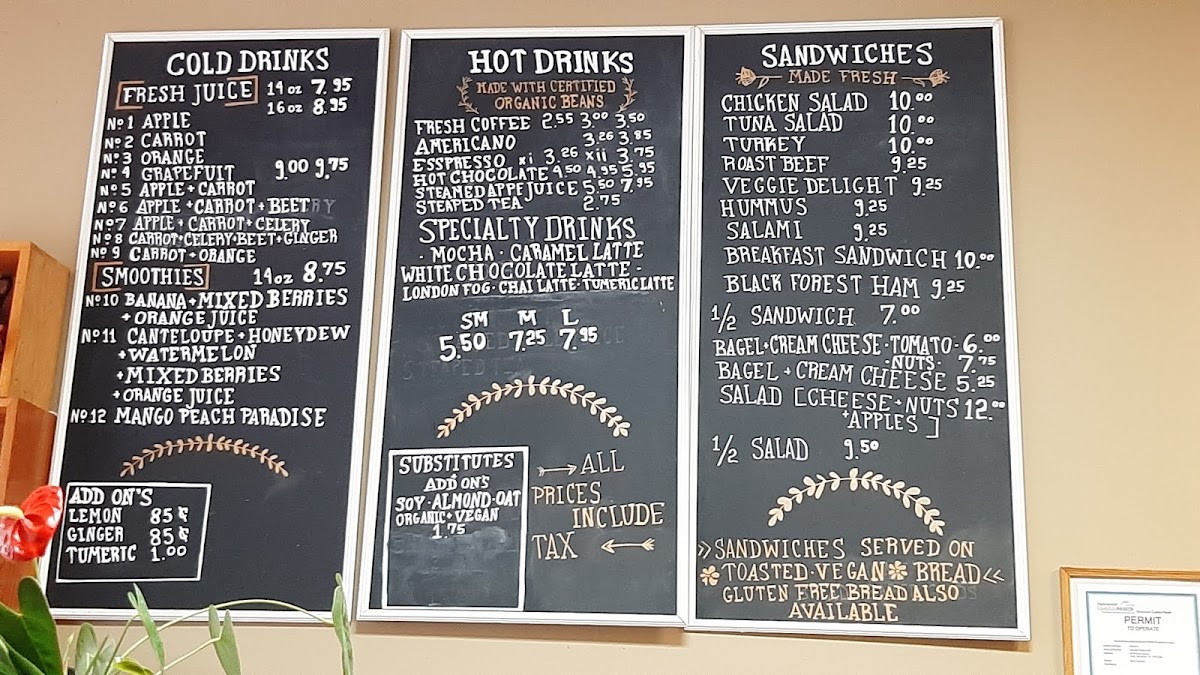 COLD DRINKS
FRESH JUICE 14oz 7.95
16oz 8.95
Nº1 APPLE
Nº2 CARROT
Nº3 ORANGE
Nº4 GRAPEFRUIT 9.00 9.75
Nº5 APPLE+CARROT
Nº6 APPLE+CARROT+BEET
Nº7 APPLE+CARROT+CELERY
Nº8 CARROT+CELERY+BEET+GINGER
Nº9 CARROT+ORANGE
SMOOTHIES 14oz 8.75
Nº10 BANANA+MIXED BERRIES
+ORANGE JUICE
Nº11 CANTELOUPE+HONEYDEW
+WATERMELON
+MIXED BERRIES
+ORANGE JUICE
Nº12 MANGO PEACH PARADISE
ADD ON'S
LEMON 85¢
GINGER 85¢
TUMERIC 1.00
HOT DRINKS
MADE WITH CERTIFIED
ORGANIC BEANS
FRESH COFFEE 2.55 3.00 3.50
AMERICANO 3.26 3.85
ESSPRESSO xi 3.26 xii 3.75
HOT CHOCOLATE 4.50 4.95 5.95
STEAMED APPE JUICE 5.50 7.95
STEAPED TEA 2.75
SPECIALTY DRINKS
· MOCHA · CARAMEL LATTE
WHITE CHOCOLATE LATTE ·
LONDON FOG · CHAI LATTE · TUMERIC LATTE
SM M L
5.50 7.25 7.95
SUBSTITUTES
ADD ON'S
SOY · ALMOND · OAT
ORGANIC + VEGAN
1.75
ALL
PRICES
INCLUDE
TAX
SANDWICHES
MADE FRESH
CHICKEN SALAD 10.00
TUNA SALAD 10.00
TURKEY 10.00
ROAST BEEF 9.25
VEGGIE DELIGHT 9.25
HUMMUS 9.25
SALAMI 9.25
BREAKFAST SANDWICH 10.00
BLACK FOREST HAM 9.25
1/2 SANDWICH 7.00
BAGEL+CREAM CHEESE·TOMATO- 6.00
·NUTS· 7.75
BAGEL + CREAM CHEESE 5.25
SALAD [CHEESE+NUTS 12.00
+APPLES]
1/2 SALAD 9.50
»SANDWICHES SERVED ON
TOASTED·VEGAN BREAD«
GLUTEN FREE BREAD ALSO
AVAILABLE
PERMIT
TO OPERATE